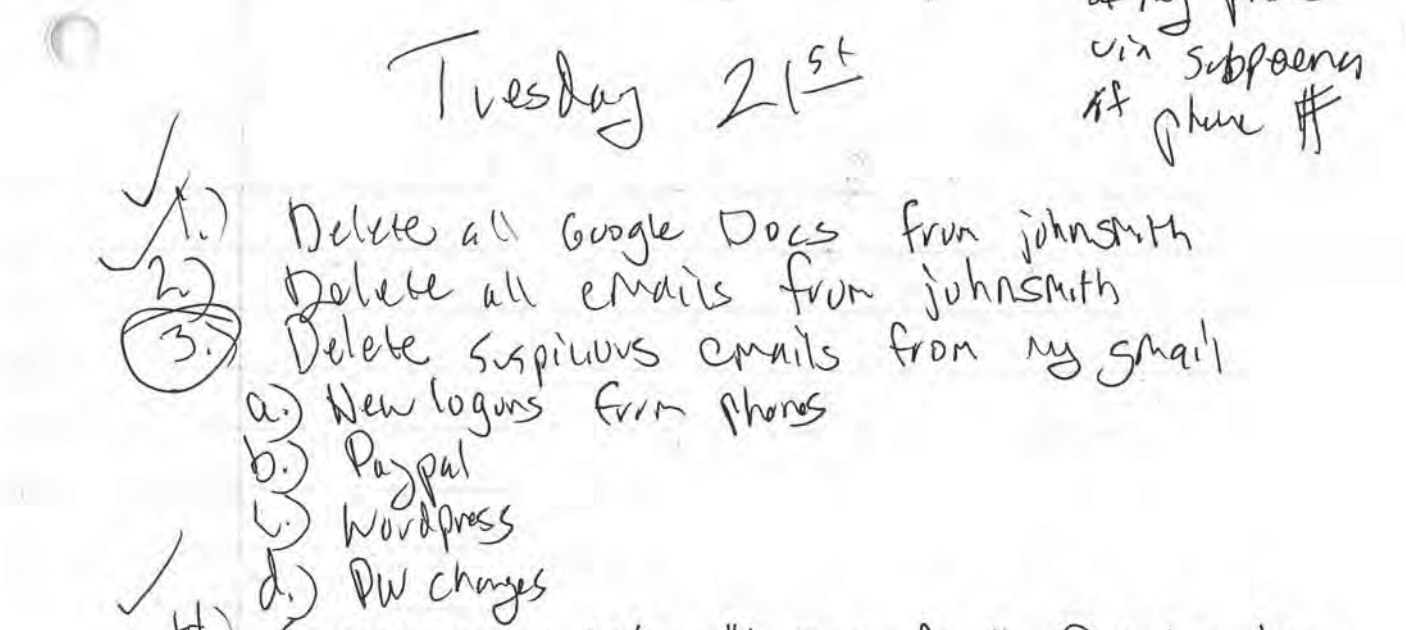 of my phone
via subpoena
if phone #
Tuesday 21st
1.) Delete all Google Docs from johnsmith
2.) Delete all emails from johnsmith
3.) Delete suspicious emails from my gmail
a.) New logons from phones
b.) Paypal
c.) Wordpress
d.) PW changes
4.)